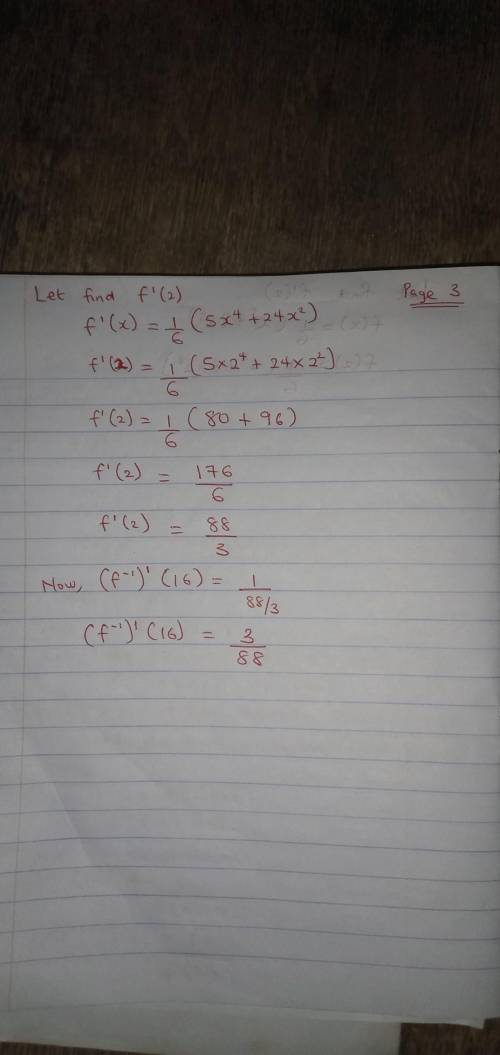 Let find f'(2) Page 3
f'(x) = 1/6 (5x⁴ + 24x²)
f'(2) = 1/6 (5×2⁴ + 24×2²)
f'(2) = 1/6 (80 + 96)
f'(2) = 176/6
f'(2) = 88/3
Now, (f⁻¹)' (16) = 1/(88/3)
(f⁻¹)' (16) = 3/88